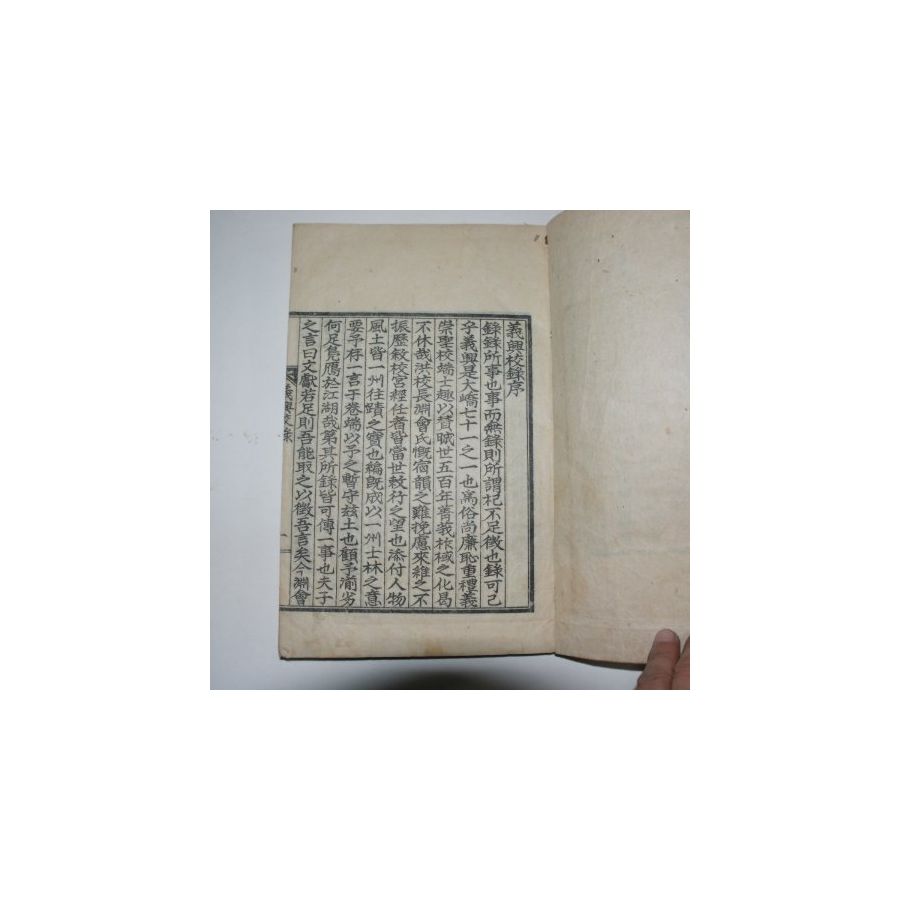 義興校錄序
錄錄所事也事而無錄則所謂杞不足徵也錄可已
乎義興是大嶠七十一之一也高俗尚廉恥重禮義
崇聖校端士趣以贊 世五百年菁莪柞棫之化曷
不休哉洪校長淵會氏慨 韻之難挽慮來雜之不
振歷敘校宮經任者皆當世敎行之望也添付人物
風土皆一州往蹟之寶也編旣成以一州士林之意
要予存一言于卷端以予之暫守玆土也顧予湔劣
何足鳧鴈於江湖哉第其所錄皆可傳一事也夫子
之言曰文獻若足則吾能取之以徵吾言矣今淵會
義興校錄
一